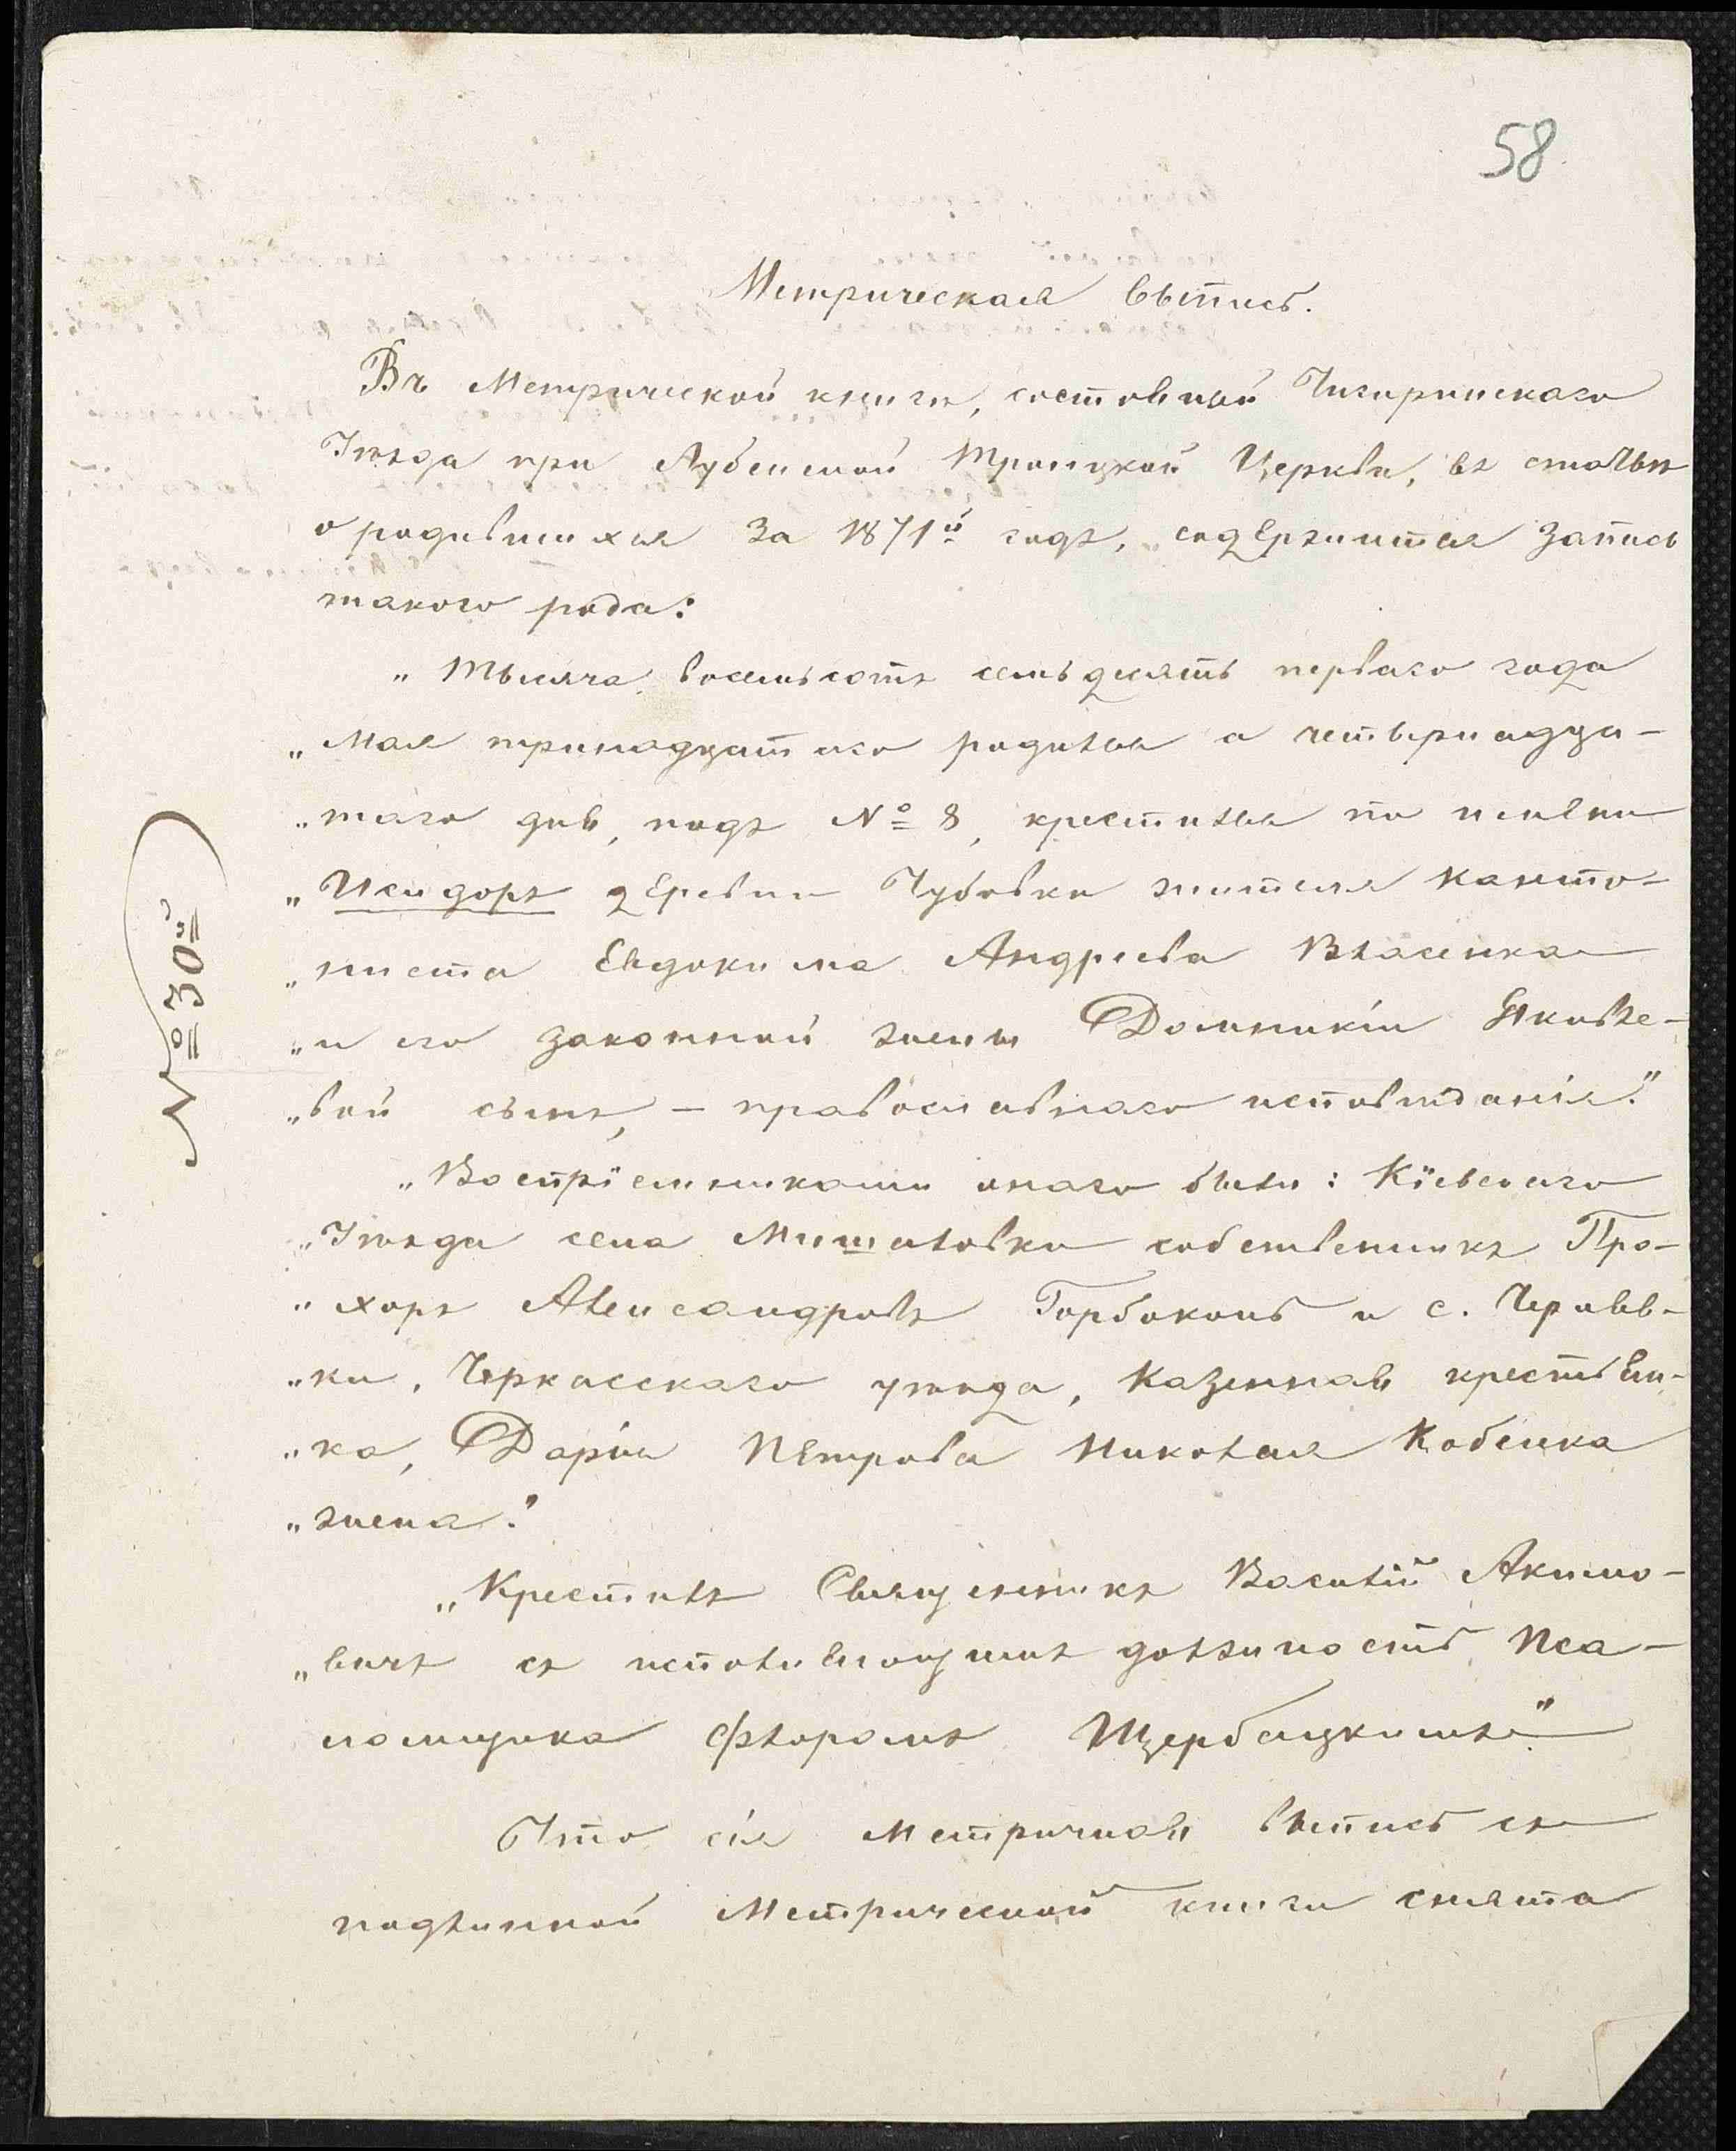 58
Метрическая выпись.
Въ Метрической книги, состовиной Чигиринскаго
Уѣзда при Лубенской Троицкой Церкви, въ статьѣ
о родившихся за 1871й годъ, содержится запись
такого рода:
„Тысяча восемьсотъ семьдесятъ перваго года
„Мая тринадцатаго родился а четырнадца-
„таго дня, подъ № 8, крестился по имени
„Исидоръ деревни Чубовки жителя Канто-
„ниста Евдокима Андреева Власенка
„и его законной жены Домникіи Яковле-
„вой сынъ, – православнаго исповѣданія."
„Воспріемниками онаго были: Кіевскаго
„Уѣзда села Мишаловки собственникъ Про-
„хоръ Александровъ Горбоконь и с. Черявв-
„ки, Черкасскаго уѣзда, Казенная крестьян-
„ка, Дарія Петрова Николая Кобенка
„жена."
„Крестилъ Священникъ Василій Акимо-
„вичъ съ исполняющимъ должность Пса-
ломщика Флоромъ Щербацкимъ"
Что сія Метричная выпись съ
подлинной Метрической книги снята
№ 30й